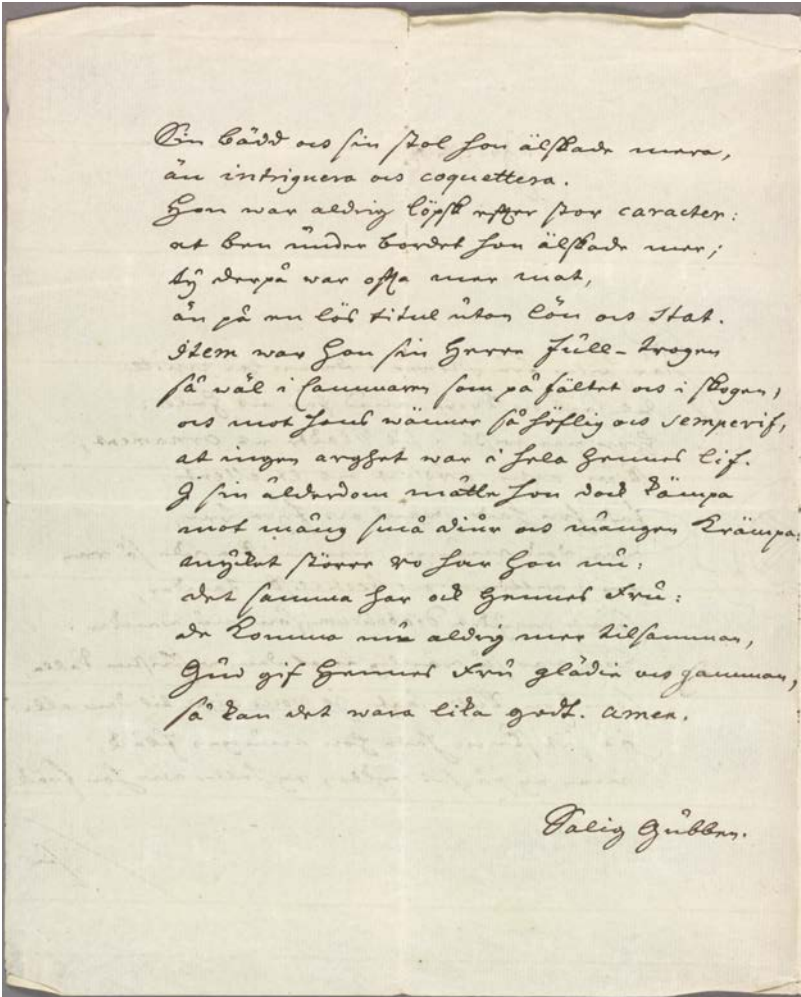 Sin bädd och sin stol hon älskade mera,
än intriguera och coquettera.
Hon war aldrig löpsk efter stor caracter:
et ben under bordet hon älskade mer;
ty derpå war ofta mer mat,
än på en lös titul utan lön och Stat.
Item war hon sin Herre full-trogen
så wäl i Cammaren som på fältet och i skogen,
och mot hans wänner så höflig och semperif,
at ingen arghet war i hela Hennes lif.
I sin ålderdom måtte hon dock kämpa
mot mång små diur och mången Krämpa:
mycket större ro har hon nu:
det samma har ock Hennes Fru:
de komma nu aldrig mer tilsamman,
Gud gif Hennes Fru glädie och gamman,
så kan det wara lika godt. Amen.
Salig Gubben.